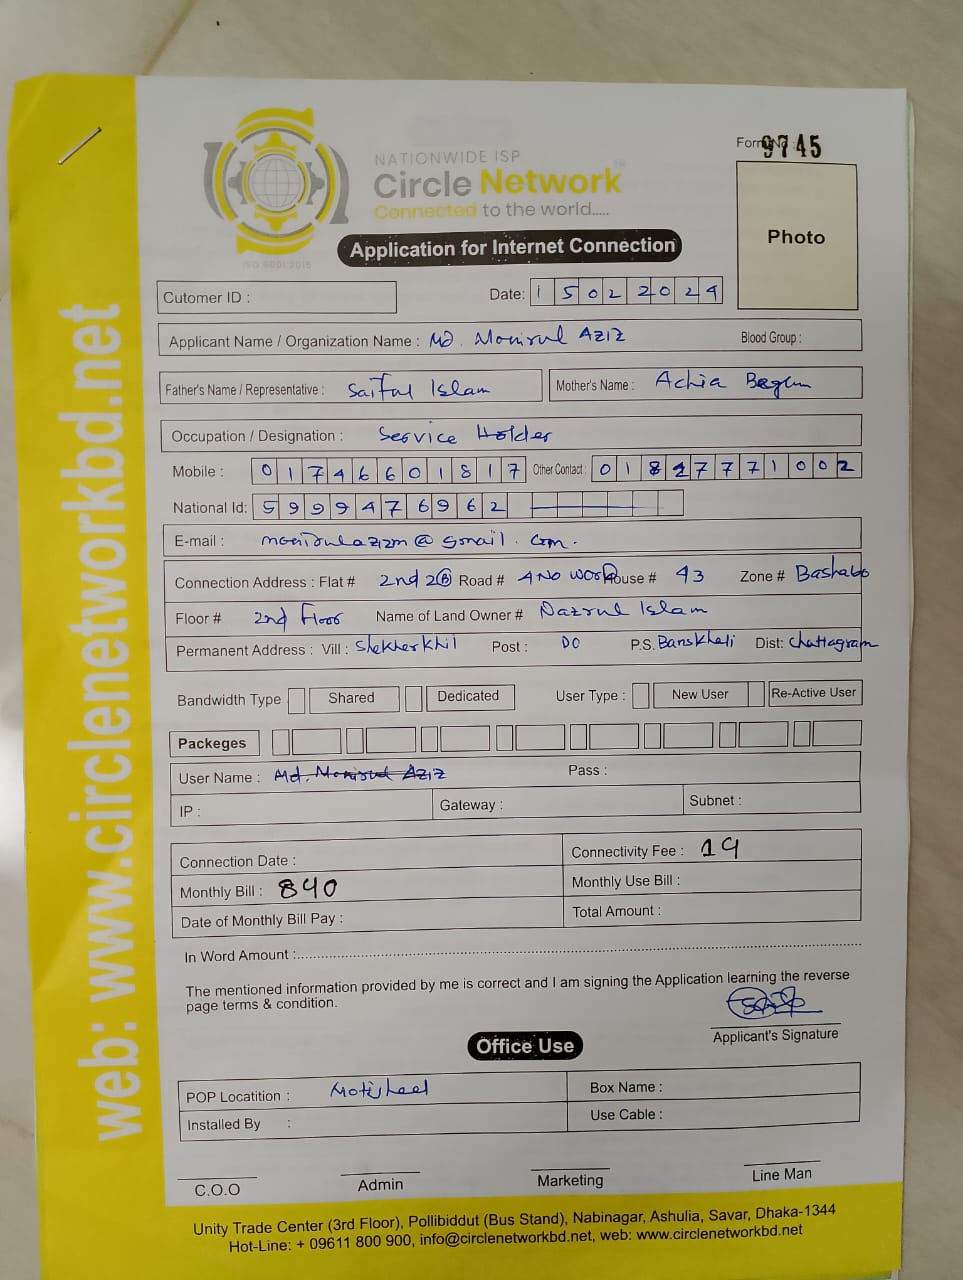 web: www.circlenetworkbd.net
NATIONWIDE ISP
Circle Network
Connected to the world.....
ISO 9001:2015
Form No : 9745
Photo
Application for Internet Connection
Cutomer ID :
Date: 15022024
Applicant Name / Organization Name : Md. Monirul Aziz Blood Group :
Father's Name / Representative : Saiful Islam Mother's Name : Achia Begum
Occupation / Designation : Service Holder
Mobile : 01746601817 Other Contact : 01847771002
National Id: 5999476962
E-mail : monirulazizm@gmail.com.
Connection Address : Flat # 2nd 2B Road # 4 No House # 43 Zone # Bashabo
Floor # 2nd Floor Name of Land Owner # Nazrul Islam
Permanent Address : Vill : Shekherkhil Post : DO P.S. Banskhali Dist: Chattagram
Bandwidth Type Shared Dedicated User Type : New User Re-Active User
Packeges
User Name : Md. Monirul Aziz Pass :
IP : Gateway : Subnet :
Connection Date : Connectivity Fee : 19
Monthly Bill : 840 Monthly Use Bill :
Date of Monthly Bill Pay : Total Amount :
In Word Amount :
The mentioned information provided by me is correct and I am signing the Application learning the reverse
page terms & condition.
Applicant's Signature
Office Use
POP Locatition : Motijheel Box Name :
Installed By : Use Cable :
C.O.O Admin Marketing Line Man
Unity Trade Center (3rd Floor), Pollibiddut (Bus Stand), Nabinagar, Ashulia, Savar, Dhaka-1344
Hot-Line: + 09611 800 900, info@circlenetworkbd.net, web: www.circlenetworkbd.net